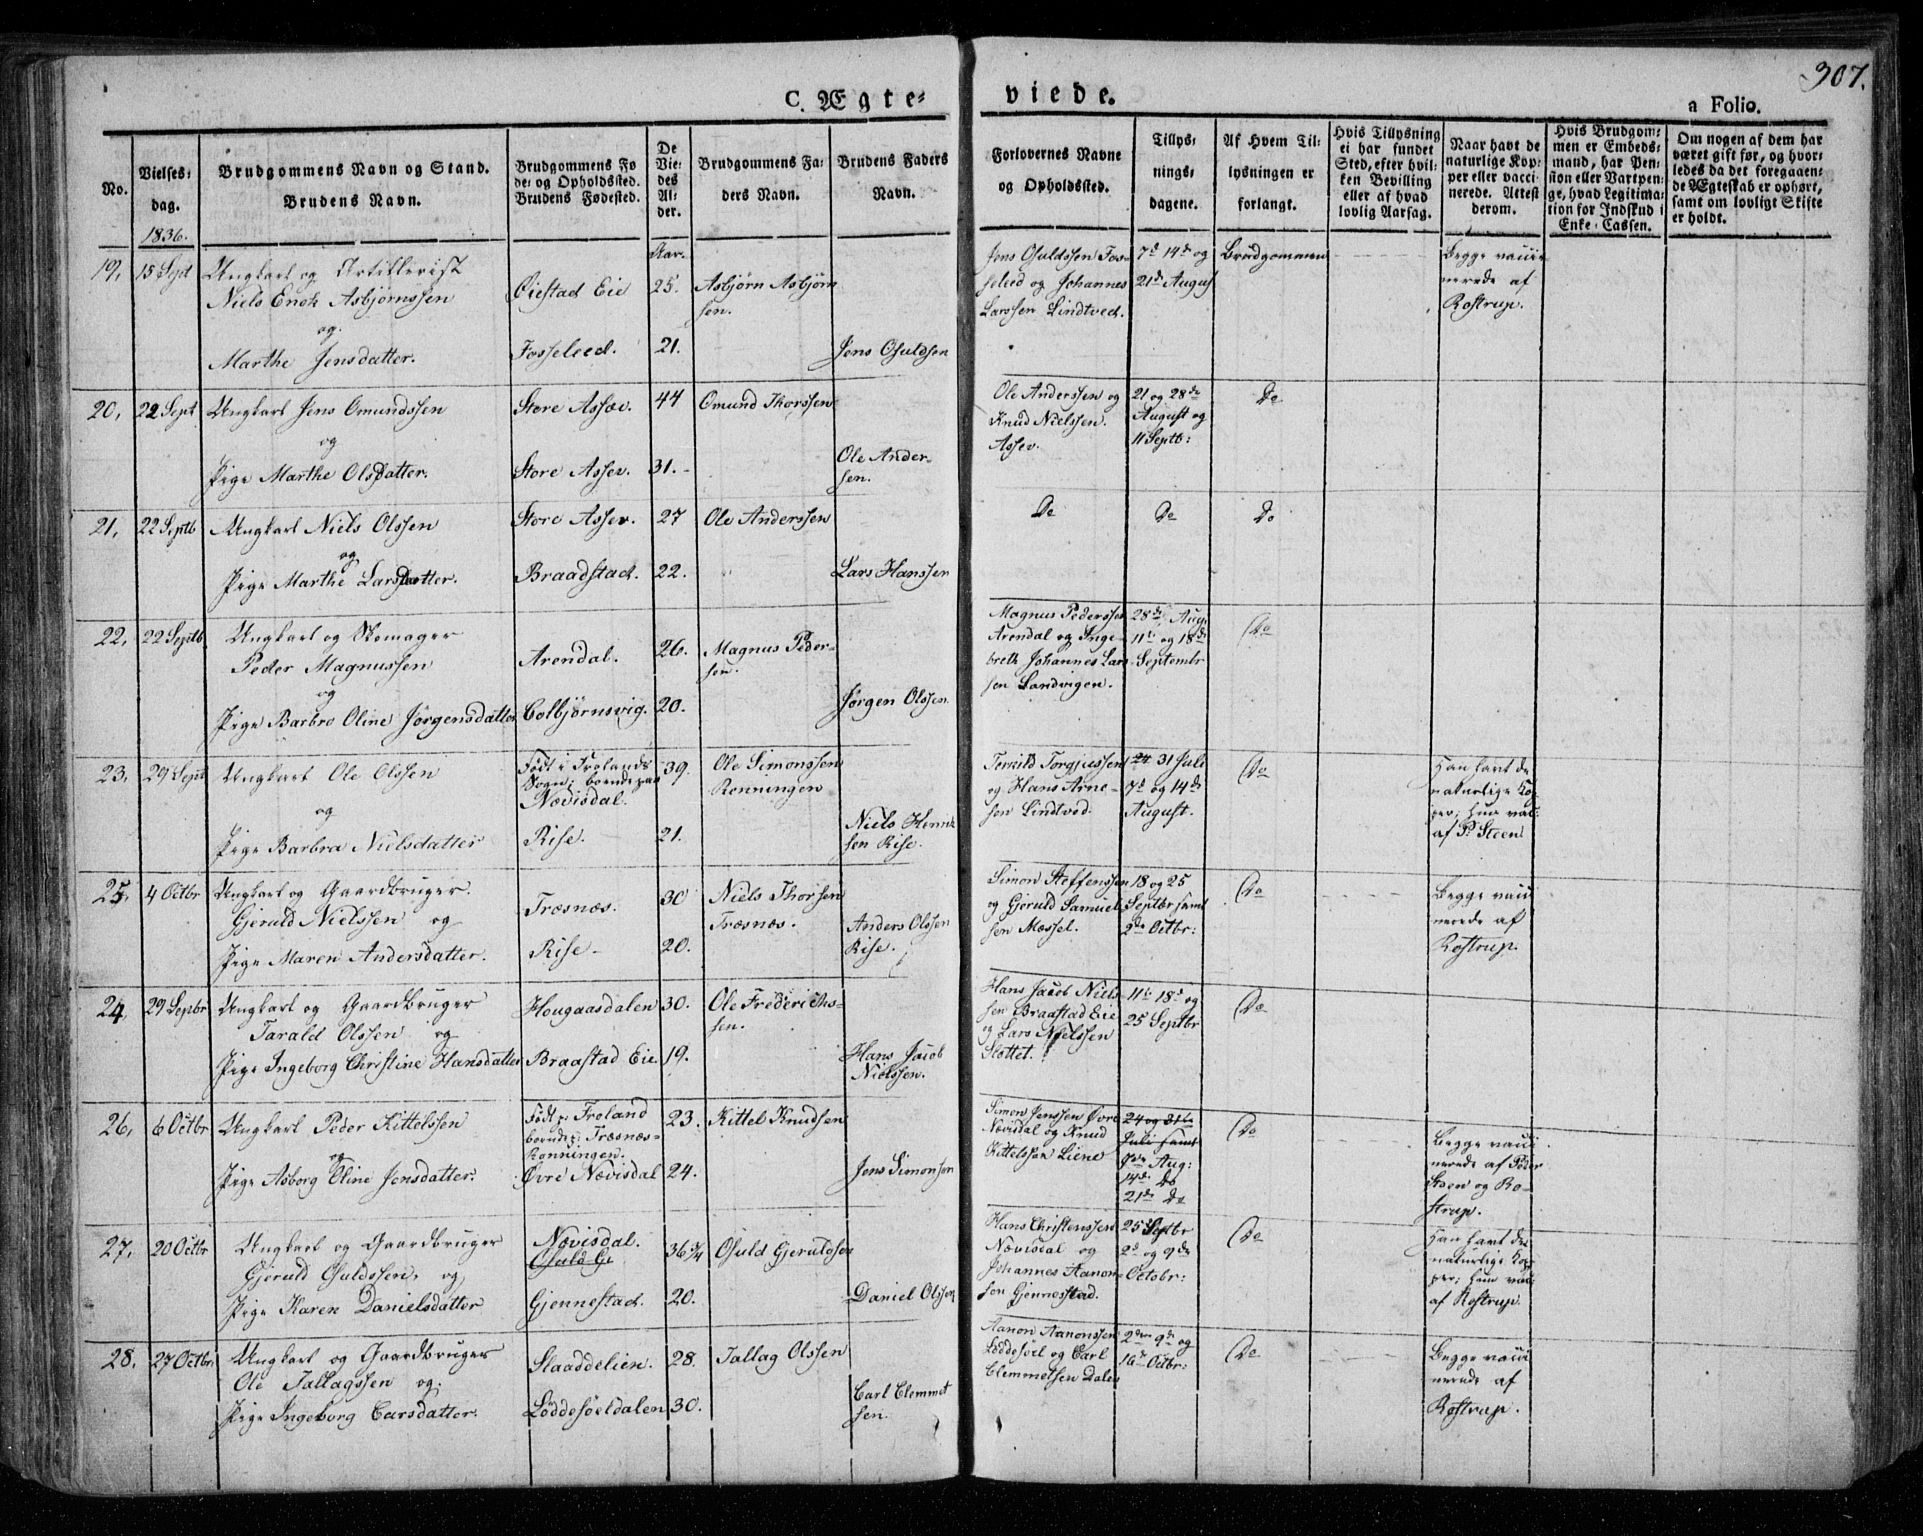 307.
C. Ægte-
viede.
a Folio.
No.
Vielses-
dag.
1836.
Brudgommens Navn og Stand.
Brudens Navn.
Brudgommens Fø
de- og Opholdssted.
Brudens Fødested.
De
Vie-
des
Al-
der.
Aar.
Brudgommens Fa-
ders Navn.
Brudens Faders
Navn.
Forlovernes Navne
og Opholdssted.
Tillys-
nings-
dagene.
Af Hvem Til-
lysningen er
forlangt.
Hvis Tillysning
ei har fundet
Sted, efter hvil-
ken Bevilling
eller af hvad
lovlig Aarsag.
Naar havt de
naturlige Kop-
per eller vacci-
nerede. Attest
derom.
Hvis Brudgom-
men er Embeds-
mand, har Pen-
sion eller Vartpen-
ge, hvad Legitima-
tion for Indskud i
Enke-Cassen.
Om nogen af dem har
været gift før, og hvor-
ledes da det foregaaen-
de Ægteskab er ophørt,
samt om lovligt Skifte
er holdt.
19, 15 Sept Ungkarl og Artillerist
Niels Enok Asbjørnssen
og
Marthe Jensdatter.
Øiestad Eie 25. Asbjørn Asbjørn
sen.
Fosselied. 21. Jens Osuldsen
Jens Osuldssen Fos-
selied og Johannes
Larssen Lindtved.
7de 14de og
21de August
Brudgommen
Begge vacci
nerede af
Rostrup.
20, 22 Sept Ungkarl Jens Omundssen
og
Pige Marthe Olsdatter.
Store Assev. 44 Omund Thorssen
Store Assev. 31. Ole Ander-
sen.
Ole Anderssen og
Knud Nielssen.
Assev.
21 og 28de
August og
11 Septb:
Do
21, 22 Septb Ungkarl Niels Olssen
og
Pige Marthe Larsdatter.
Store Assev. 27 Ole Anderssen
Braadstad. 22. Lars Hanssen
Do Do Do
22, 22 Septb Ungkarl og Skomager
Peder Magnussen
og
Pige Barbro Oline Jørgensdatter
Arendal. 26. Magnus Peder-
sen.
Colbjørnsvig. 20. Jørgen Olssen
Magnus Pederssen
Arendal og Inge-
breth Johannes Lars
sen Sandvigen.
28de Aug.
11te og 18de
Septembr
Do
23, 29 Sept Ungkarl Ole Olssen
og
Pige Barbra Nielsdatter
Født i Frolands
Sogn; boende paa
Nævisdal.
39. Ole Simonssen
Rønningen
Rise. 21. Niels Henrik
sen Rise.
Terald Torgjussen
og Hans Arne-
sen Lindtved.
24 31 Juli
7de og 14de
August.
Do
Han havt de
naturlige Kop
per; hun vac:
af P. Steen
25, 4 Octbr Ungkarl og Gaardbruger.
Gjeruld Nielssen og
Pige Maren Andersdatter.
Træsnæs. 30 Niels Thorsen
Træsnæs.
Rise 20. Anders Olssen
Rise.
Simon Steffenssen
og Gjeruld Samuel
sen Mæssel.
18 og 25
Septbr samt
2den Octbr:
Do
Begge vacci
nerede af
Rostrup.
24, 29 Septbr Ungkarl og Gaardbruger
Tarald Olssen og
Pige Ingeborg Christine Hansdatter
Hougaasdalen 30. Ole Frederichs-
sen.
Braastad Eie 19. Hans Jacob
Nielssen.
Hans Jacob Niels
sen Braastad Eie
og Lars Nielssen
Slottet.
11te 18de og
25 Septbr
Do
26, 6 Octbr Ungkarl Peder Kittelssen
og
Pige Asborg Oline Jensdatter.
Født i Froland
boende i Træsnæs-
Rønningen.
23. Kittel Knudsen
Øvre Nævisdal 24. Jens Simonsen
Simon Jenssen Øvre
Nævisdal og Knud
Kittelssen Liene
24 og 31te
Juli samt
Aug:
14de Do
21de Do
Do
Begge vacci
nerede af Peder
Steen og Ro-
strup.
27, 20 Octbr Ungkarl og Gaardbruger
Gjeruld Osuldssen, og
Pige Karen Danielsdatter
Nævisdal.
Osuld G:
36 3/4 Osuld Gjeruldsen
Gjennestad. 20. Daniel Olssen
Hans Christenssen
Nævisdal og
Johannes Aanon-
sen Gjennestad.
25 Septbr
2de og 9de
Octobr:
Do
Han havt de
naturlige Kop
per; hun vac:
af Rostrup.
28. 27 Octbr Ungkarl og Gaardbruger
Ole Tallagssen og
Pige Ingeborg Carsdatter.
Staaddelien. 28. Tallag Olssen
Løddesøeldalen 30. Carl Clemmet
sen.
Aanon Aanonssen
Løddesøel og Carl
Clemmetsen Dalen
2den 9de og
16de Octbr:
Do
Begge vacci
nerede af
Rostrup.